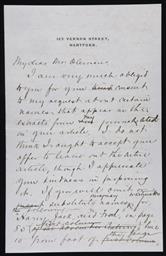 147 VERNON STREET,
HARTFORD.
My dear Mr. Clemens:
I am very much obliged
to you for your consent
to my request about certain
names that appear in the
extracts from
your article. I do not
think I ought to accept your
offer to leave out the entire
article, though I appreciate
your kindness in proposing
it. If you will omit
or substitute names
Harry, Jack, and Tod, on page
10 from foot of